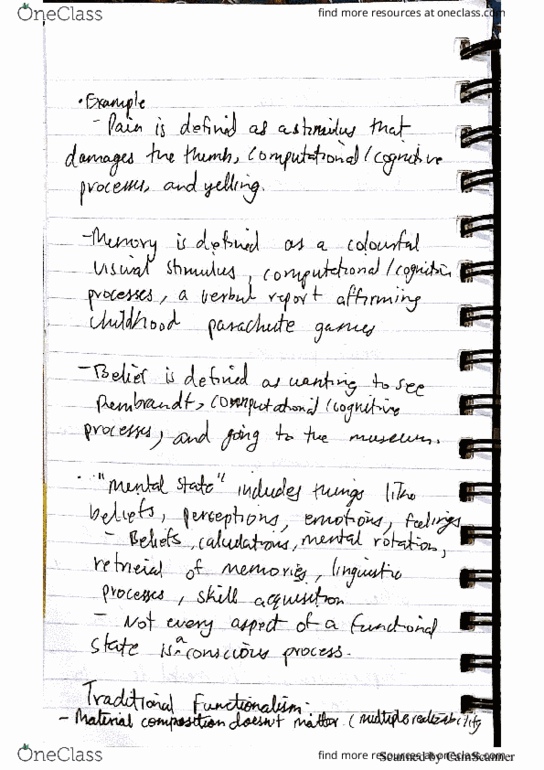 OneClass
find more resources at oneclass.com
• Example
- Pain is defined as a stimulus that
damages the thumb, computational/cognitive
processes, and yelling.
- Memory is defined as a colourful
visual stimulus, computational/cognitive
processes, a verbal report affirming
childhood parachute games
- Belief is defined as wanting to see
Rembrandt, computational/cognitive
processes, and going to the museum.
• "Mental state" includes things like
beliefs, perceptions, emotions, feelings
- Beliefs, calculations, mental rotation,
retrieval of memories, linguistic
processes, skill acquisition
- Not every aspect of a functional
state is a conscious process.
Traditional Functionalism:
- Material composition doesn't matter (multiple realizability
OneClass
find more resources at oneclass.com
Scanned by CamScanner